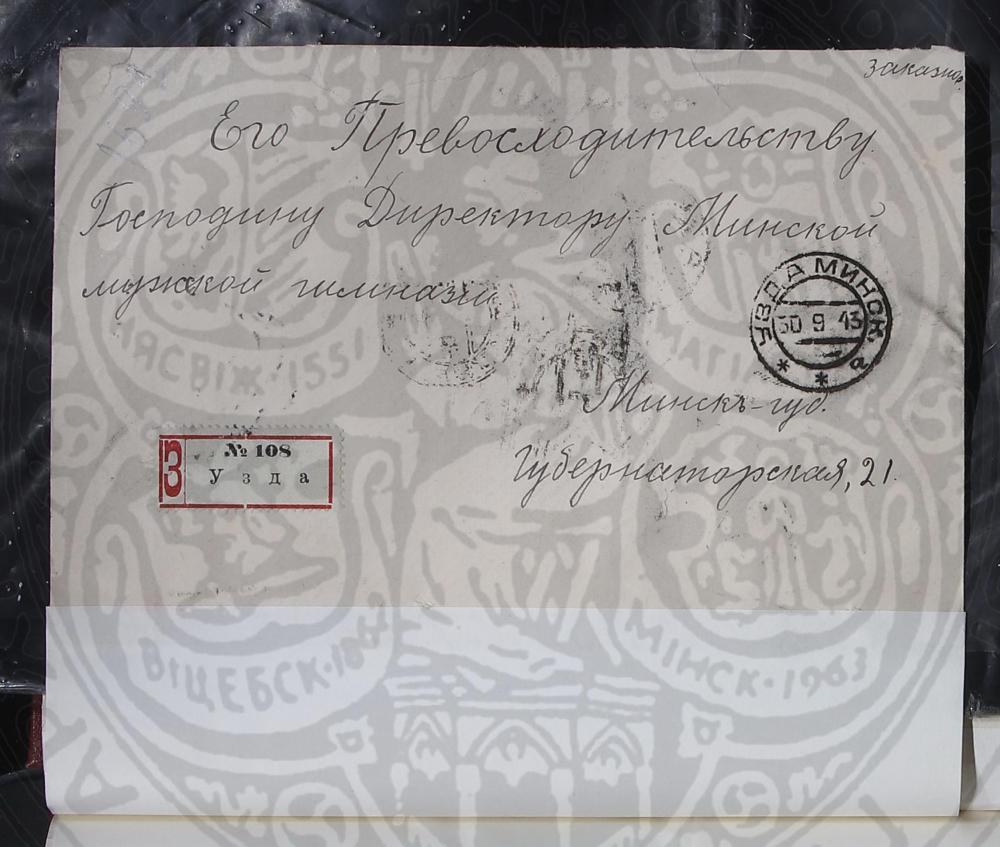 Заказное
Его Превосходительству
Господину Директору Минской
мужской гимназии
УЗДА МИНСК.
30 9 13
* * а
Минскъ-губ.
Губернаторская, 21.
З
№ 108
Узда
НЯСВІЖ · 1551
МАГІЛ
ВІЦЕБСК · 1862
МІНСК · 1963